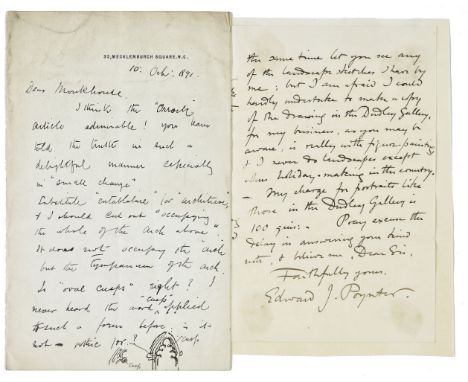 30, MECKLENBURGH SQUARE, W.C.
10. Oct. 1891.
Dear Monkhouse
I think the
article admirable! you have
told the truth in such a
delightful manner especially
in "small change"
Substitute entablature for architrave
& I should cut out "occupying
the whole of the arch above".
It does not occupy the arch
but the tympanum of the arch.
Is "oval cusps" right? I
cusp
never heard the word applied
to such a form before: is it
not – for?
cusp
cusp
the same time let you see any
of the landscape sketches I have by
me; but I am afraid I could
hardly undertake to make a copy
of the drawing in the Dudley Gallery,
for my business, as you may be
aware, is really with figure painting
& I never do landscapes except
when holiday-making in the country.
– My charge for portraits like
those in the Dudley Gallery is
100 gns: – Pray excuse the
delay in answering your kind
note, & believe me, Dear Sir,
Faithfully yours,
Edward J. Poynter.